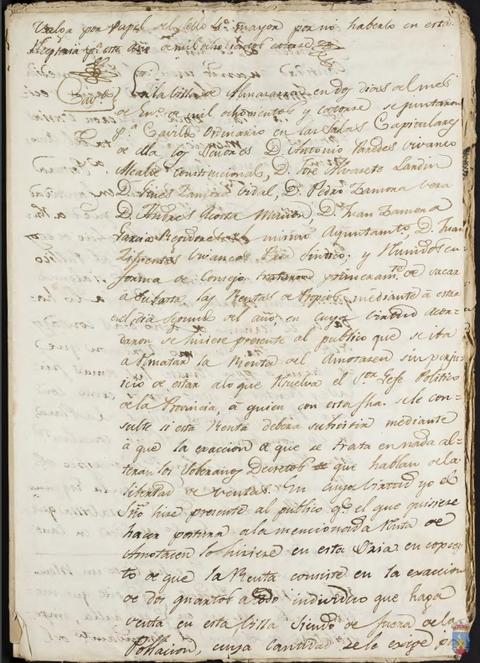 Valga por Papel del Sello 4º mayor por no haberlo en esta
Receptoria pª este año de mil ochocientos catorce
Cavdo
En la Villa de Almazarron en dos dias del mes
de Enº de mil ochocientos y catorce se juntaron
Pª Cavildo Ordinario en las Salas Capitulares
de ella los Señores D. Antonio Paredes Vivanco
Alcalde Constitucional, D. José Alvacete Lardin
D. Gines Zamora Vidal, D. Pedro Zamora Vera
D. Andres Acosta Muñoz, D. Juan Zamora
Garcia Regidores del mismo Ayuntamtº D. Juan
Zifuentes Vivancos Sindico; y Reunidos en
forma de Consejo trataron primeramte de sacar
a Subasta las Rentas de Propios, mediante á estar
en el dia segundo del año, en cuya virtud acor-
daron se hiciese presente al publico que se iba
a Rematar la Renta del Almotacen sin perjui-
cio de estar a lo que Resuelva el Sor Gefe Politico
de la Provincia, á quien con esta fha. se le con-
sulte si esta Renta debera subsistir mediante
á que la exaccion de que se trata en nada al-
teran los Soberanos Decretos que hablan de la
libertad de ventas. En cuya virtud yo el
Srio hise presente al publico qe el que quisiese
hacer postura a la mencionada Renta de
Almotacen lo hiciese en este Dia en concep-
to de que la Renta consiste en la exaccion
de dos quartos a todo individuo que haga
venta en esta Villa siendo de fuera de la
Poblacion, cuya cantidad se le exige pr